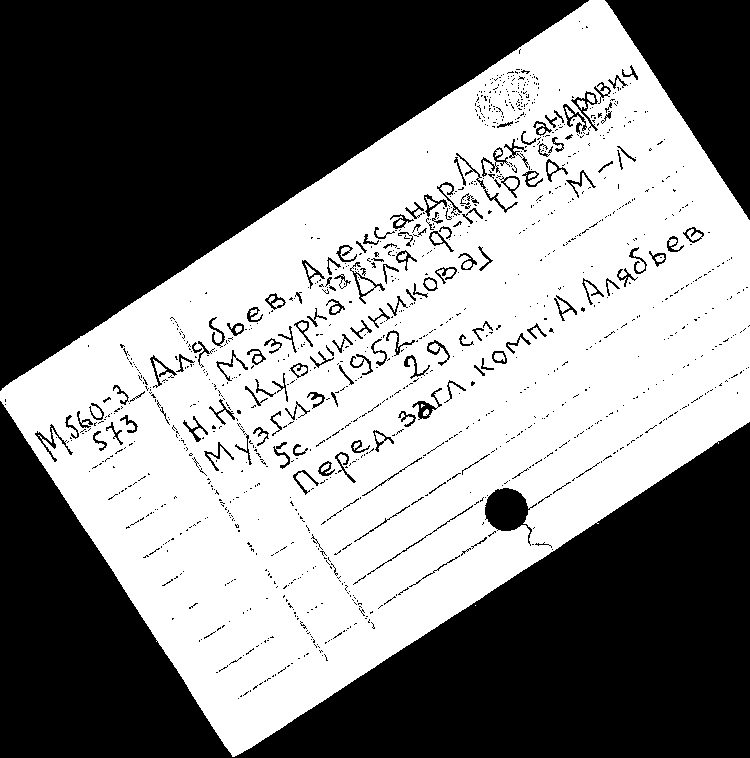 Алябьев., Александр Александрович
Кавказская [?] es-dur
Мазурка. Для ф-п. [Ред
Н.Н. Кувшинникова] М-Л
Музгиз, 1952
5с 29 см.
Перед загл. комп: А. Алябьев
М560-3
573